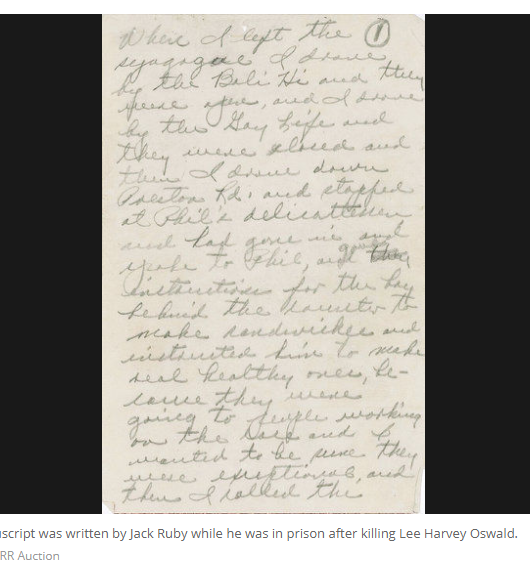 When I left the ①
synagogue I drove
by the Bali Hi and they
were open, and I drove
by the Gay Life and
they were closed and
then I drove down
Preston Rd; and stopped
at Phil's delicattessen
and had gone in and
spoke to Phil, and gave
instructions for the boy
behind the counter to
make sandwiches and
instructed him to make
real healthy ones, be-
cause they were
going to people working
on the and I
wanted to be sure they
were exceptional, and
then I called the
uscript was written by Jack Ruby while he was in prison after killing Lee Harvey Oswald.
RR Auction